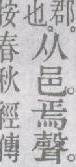 也郡。从邑。焉聲
按春秋經傳